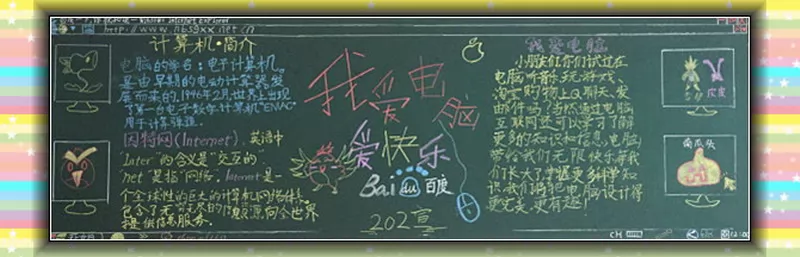 http://www.nbsgxx.net.cn
计算机·简介
电脑的学名：电子计算机。
是由早期的电动计算器发
展而来的。1946年2月，世界上出现
了第一台电子数字计算机"ENIAC"
用于计算弹道。
因特网(Internet)，英语中
"Inter"的含义是"交互的"，
"net"是指"网络"。Internet是一
个全球性的巨大的计算机网络体系，
我爱电脑
爱快乐
Baidu百度
202宣
我爱电脑
小朋友们你们试过在
电脑听音乐玩游戏、
淘宝购物上QQ聊天、发
邮件吗？当然通过电脑
互联网还可以学习了解
更多的知识和信息，电脑
带给我们无限快乐，等我
们长大了掌握更多科学知
识，我们再把电脑设计得
更完美，更有趣！
皮皮
南瓜头
CH